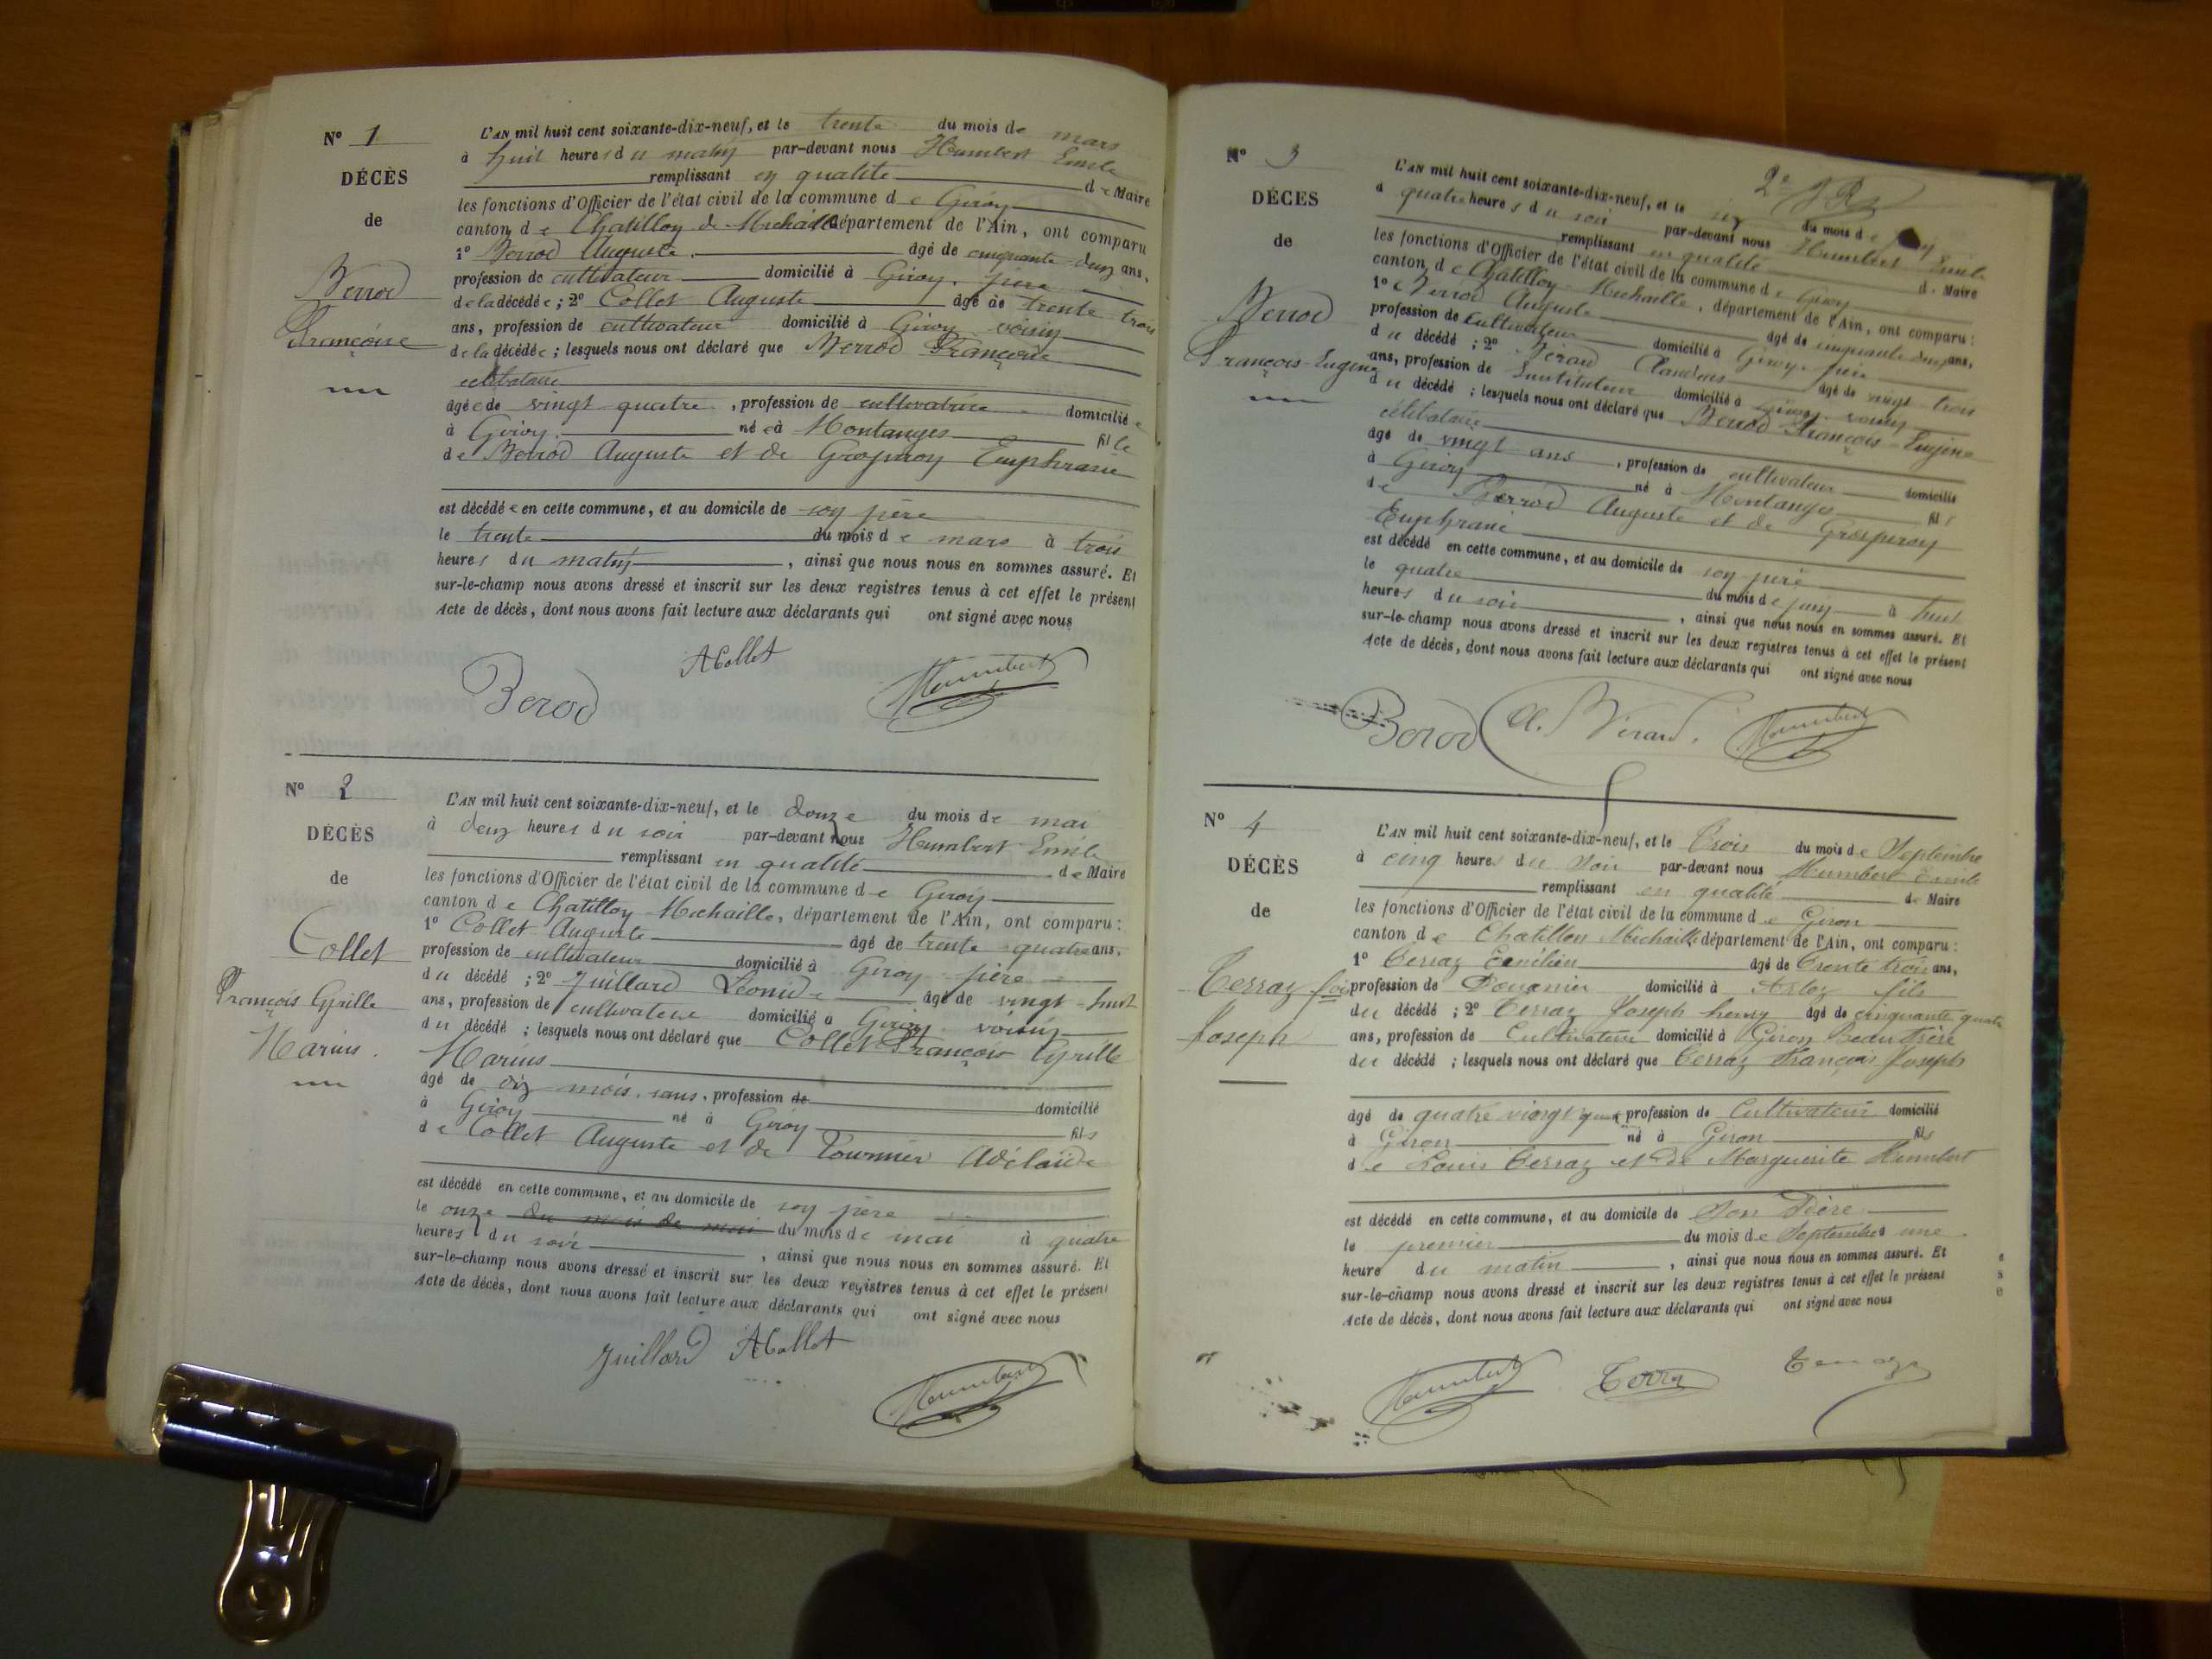 N° 1
DÉCÈS
de
Berrod
Françoise
L'AN mil huit cent soixante-dix-neuf, et le trente du mois de mars
à huit heures du matin par-devant nous Humbert Emile
remplissant en qualité de Maire
les fonctions d'Officier de l'état civil de la commune de Giron
canton de Chatillon de Michaille département de l'Ain, ont comparu
1° Berrod Auguste âgé de cinquante deux ans,
profession de cultivateur domicilié à Giron, père
de la décédée; 2° Collet Auguste âgé de trente trois
ans, profession de cultivateur domicilié à Giron voisin
de la décédée; lesquels nous ont déclaré que Berrod Françoise
célibataire
âgée de vingt quatre, profession de cultivatrice domiciliée
à Giron née à Montanges fille
de Berrod Auguste et de Grospiron Euphrasie
est décédée en cette commune, et au domicile de son père
le trente du mois de mars à trois
heures du matin, ainsi que nous nous en sommes assuré. Et
sur-le-champ nous avons dressé et inscrit sur les deux registres tenus à cet effet le présent
Acte de décès, dont nous avons fait lecture aux déclarants qui ont signé avec nous
Berod ACollet Humbert
N° 2
DÉCÈS
de
Collet
François Cyrille
Marius.
L'AN mil huit cent soixante-dix-neuf, et le douze du mois de mai
à deux heures du soir par-devant nous Humbert Emile
remplissant en qualité de Maire
les fonctions d'Officier de l'état civil de la commune de Giron
canton de Chatillon-Michaille, département de l'Ain, ont comparu:
1° Collet Auguste âgé de trente quatre ans,
profession de cultivateur domicilié à Giron père
du décédé; 2° Juillard Léonide âgé de vingt-huit
ans, profession de cultivateur domicilié à Giron voisin
du décédé; lesquels nous ont déclaré que Collet François Cyrille
Marius
âgé de dix mois, sans, profession de domicilié
à Giron né à Giron fils
de Collet Auguste et de Tournier Adélaïde
est décédé en cette commune, et au domicile de son père
le onze du mois de mai du mois de mai à quatre
heures du soir, ainsi que nous nous en sommes assuré. Et
sur-le-champ nous avons dressé et inscrit sur les deux registres tenus à cet effet le présent
Acte de décès, dont nous avons fait lecture aux déclarants qui ont signé avec nous
Juillard ACollet
Humbert
N° 3
DÉCÈS
de
Berrod
François-Eugène
2e
L'AN mil huit cent soixante-dix-neuf, et le six du mois de juin
à quatre heures du soir par-devant nous Humbert Emile
remplissant en qualité de Maire
les fonctions d'Officier de l'état civil de la commune de Giron
canton de Chatillon-Michaille, département de l'Ain, ont comparu:
1° Berrod Auguste âgé de cinquante deux ans,
profession de cultivateur domicilié à Giron, père
du décédé; 2° Bérard Claudius âgé de vingt trois
ans, profession de Instituteur domicilié à Giron, voisin
du décédé; lesquels nous ont déclaré que Berrod François-Eugène
célibataire
âgé de vingt ans, profession de cultivateur domicilié
à Giron né à Montanges fils
de Berrod Auguste et de Grospiron
Euphrasie
est décédé en cette commune, et au domicile de son père
le quatre du mois de juin à huit
heures du soir, ainsi que nous nous en sommes assuré. Et
sur-le-champ nous avons dressé et inscrit sur les deux registres tenus à cet effet le présent
Acte de décès, dont nous avons fait lecture aux déclarants qui ont signé avec nous
Berod Cl. Bérard. Humbert
N° 4
DÉCÈS
de
Terraz
Joseph
L'AN mil huit cent soixante-dix-neuf, et le Trois du mois de Septembre
à cinq heures du Soir par-devant nous Humbert Emile
remplissant en qualité de Maire
les fonctions d'Officier de l'état civil de la commune de Giron
canton de Chatillon Michaille département de l'Ain, ont comparu:
1° Terraz Emilien âgé de Trente trois ans,
profession de Douanier domicilié à Arloz fils
du décédé; 2° Terraz Joseph henry âgé de cinquante quatre
ans, profession de Cultivateur domicilié à Giron Beau frère
du décédé; lesquels nous ont déclaré que Terraz François Joseph
âgé de quatre vingt profession de Cultivateur domicilié
à Giron né à Giron fils
de Louis Terraz et de Marguerite Humbert
est décédé en cette commune, et au domicile de Son
le premier du mois de Septembre à une
heure du matin, ainsi que nous nous en sommes assuré. Et
sur-le-champ nous avons dressé et inscrit sur les deux registres tenus à cet effet le présent
Acte de décès, dont nous avons fait lecture aux déclarants qui ont signé avec nous
Humbert Terraz Terraz